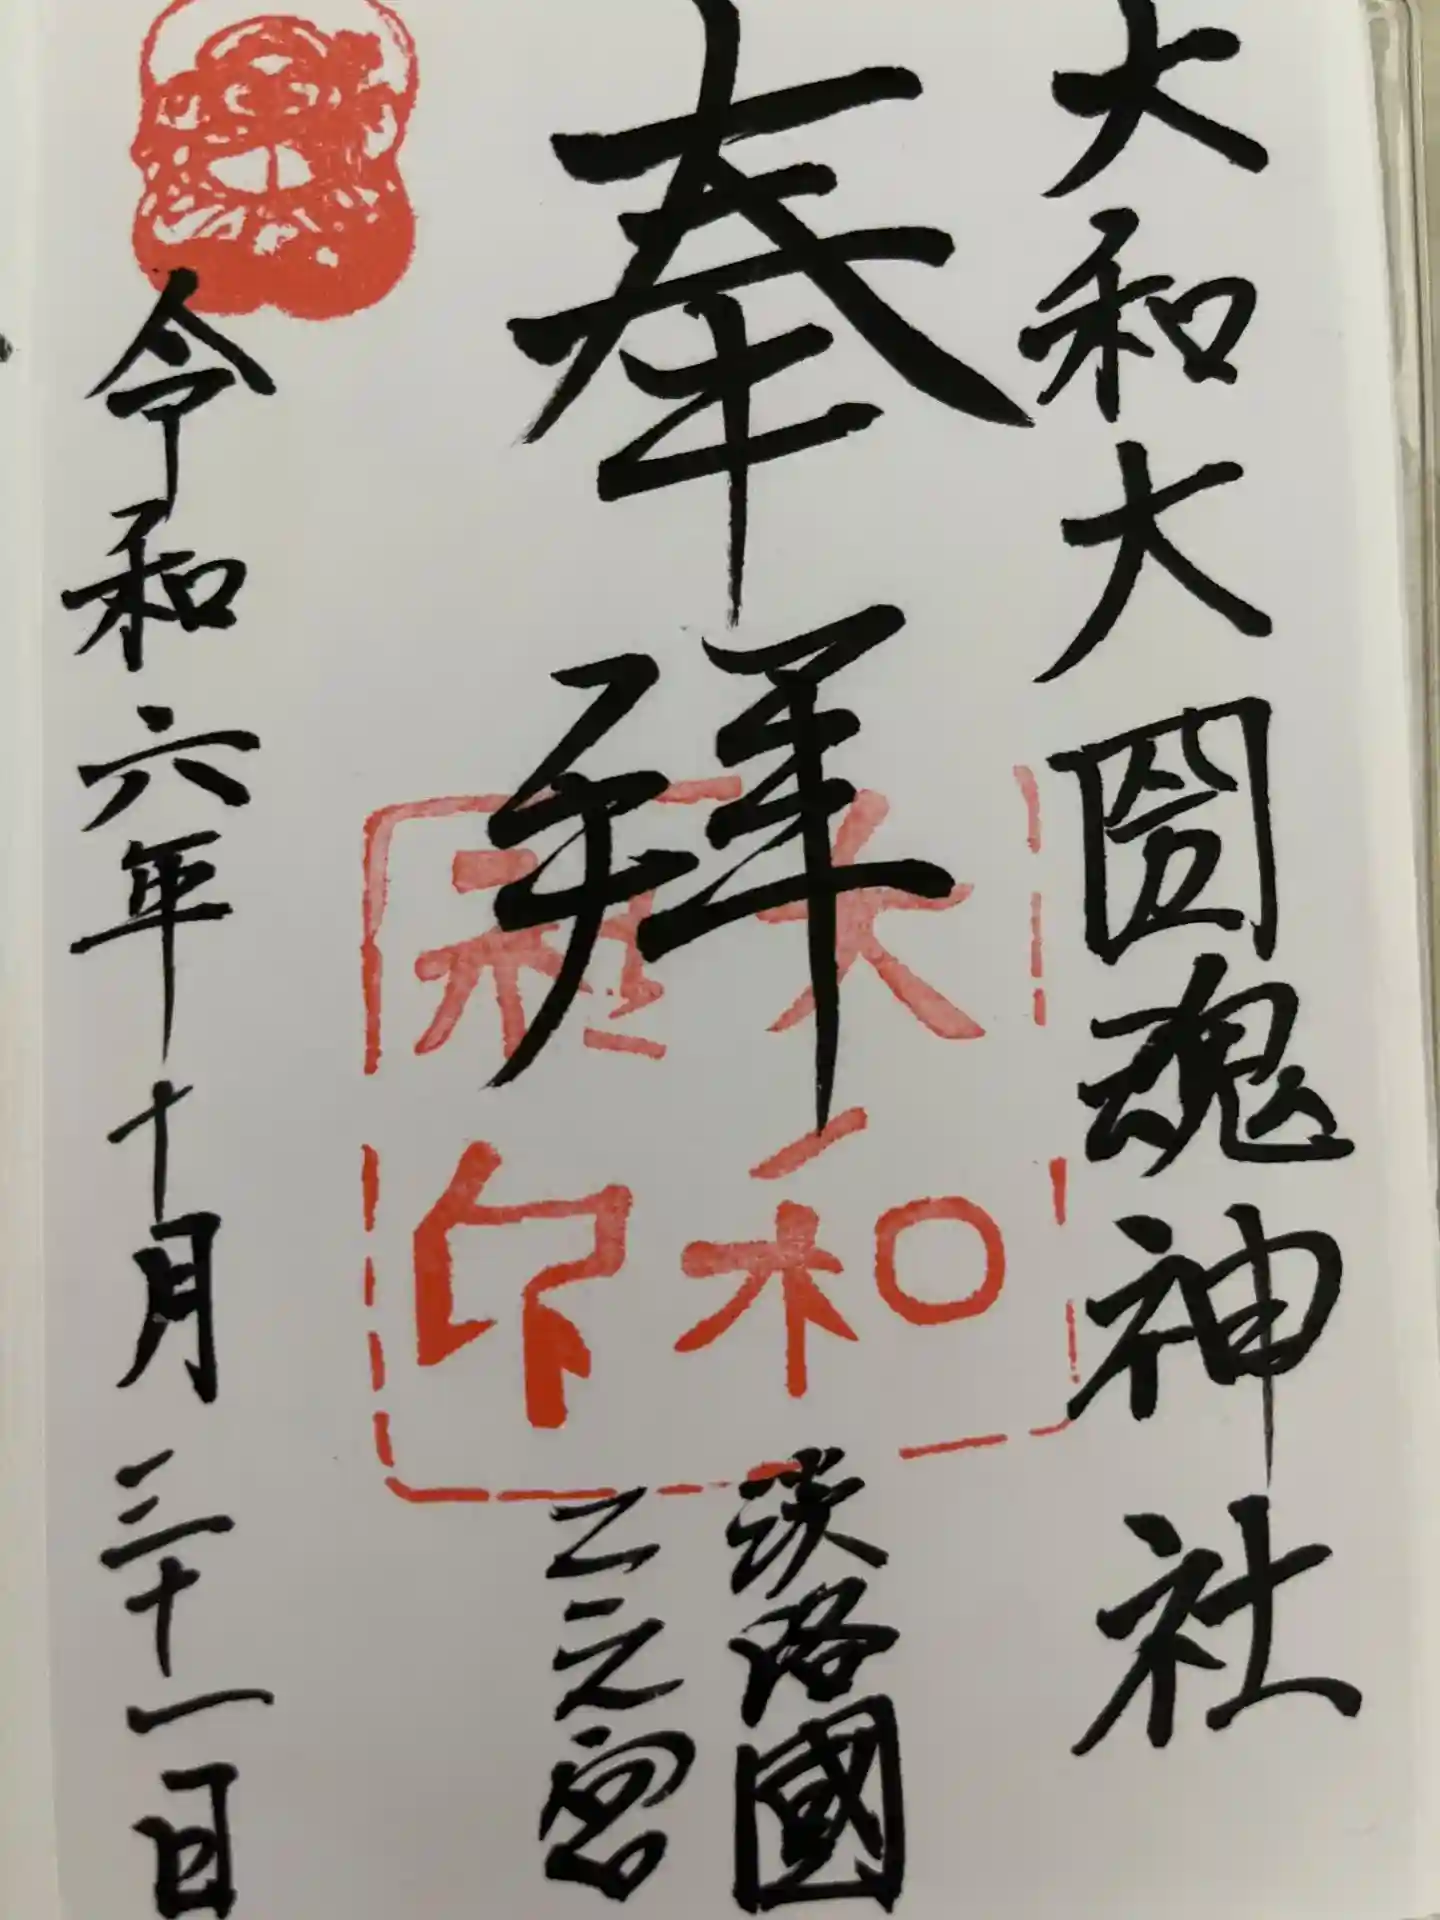 大和大圀魂神社
奉拜
淡路國
二之宮
令和六年十月三十一日
大和
社印